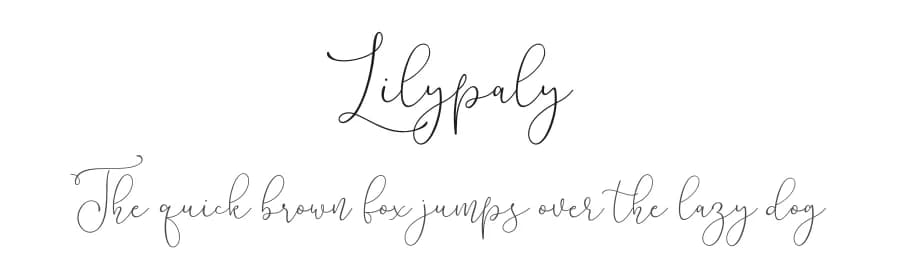 Lilypaly
The quick brown fox jumps over the lazy dog